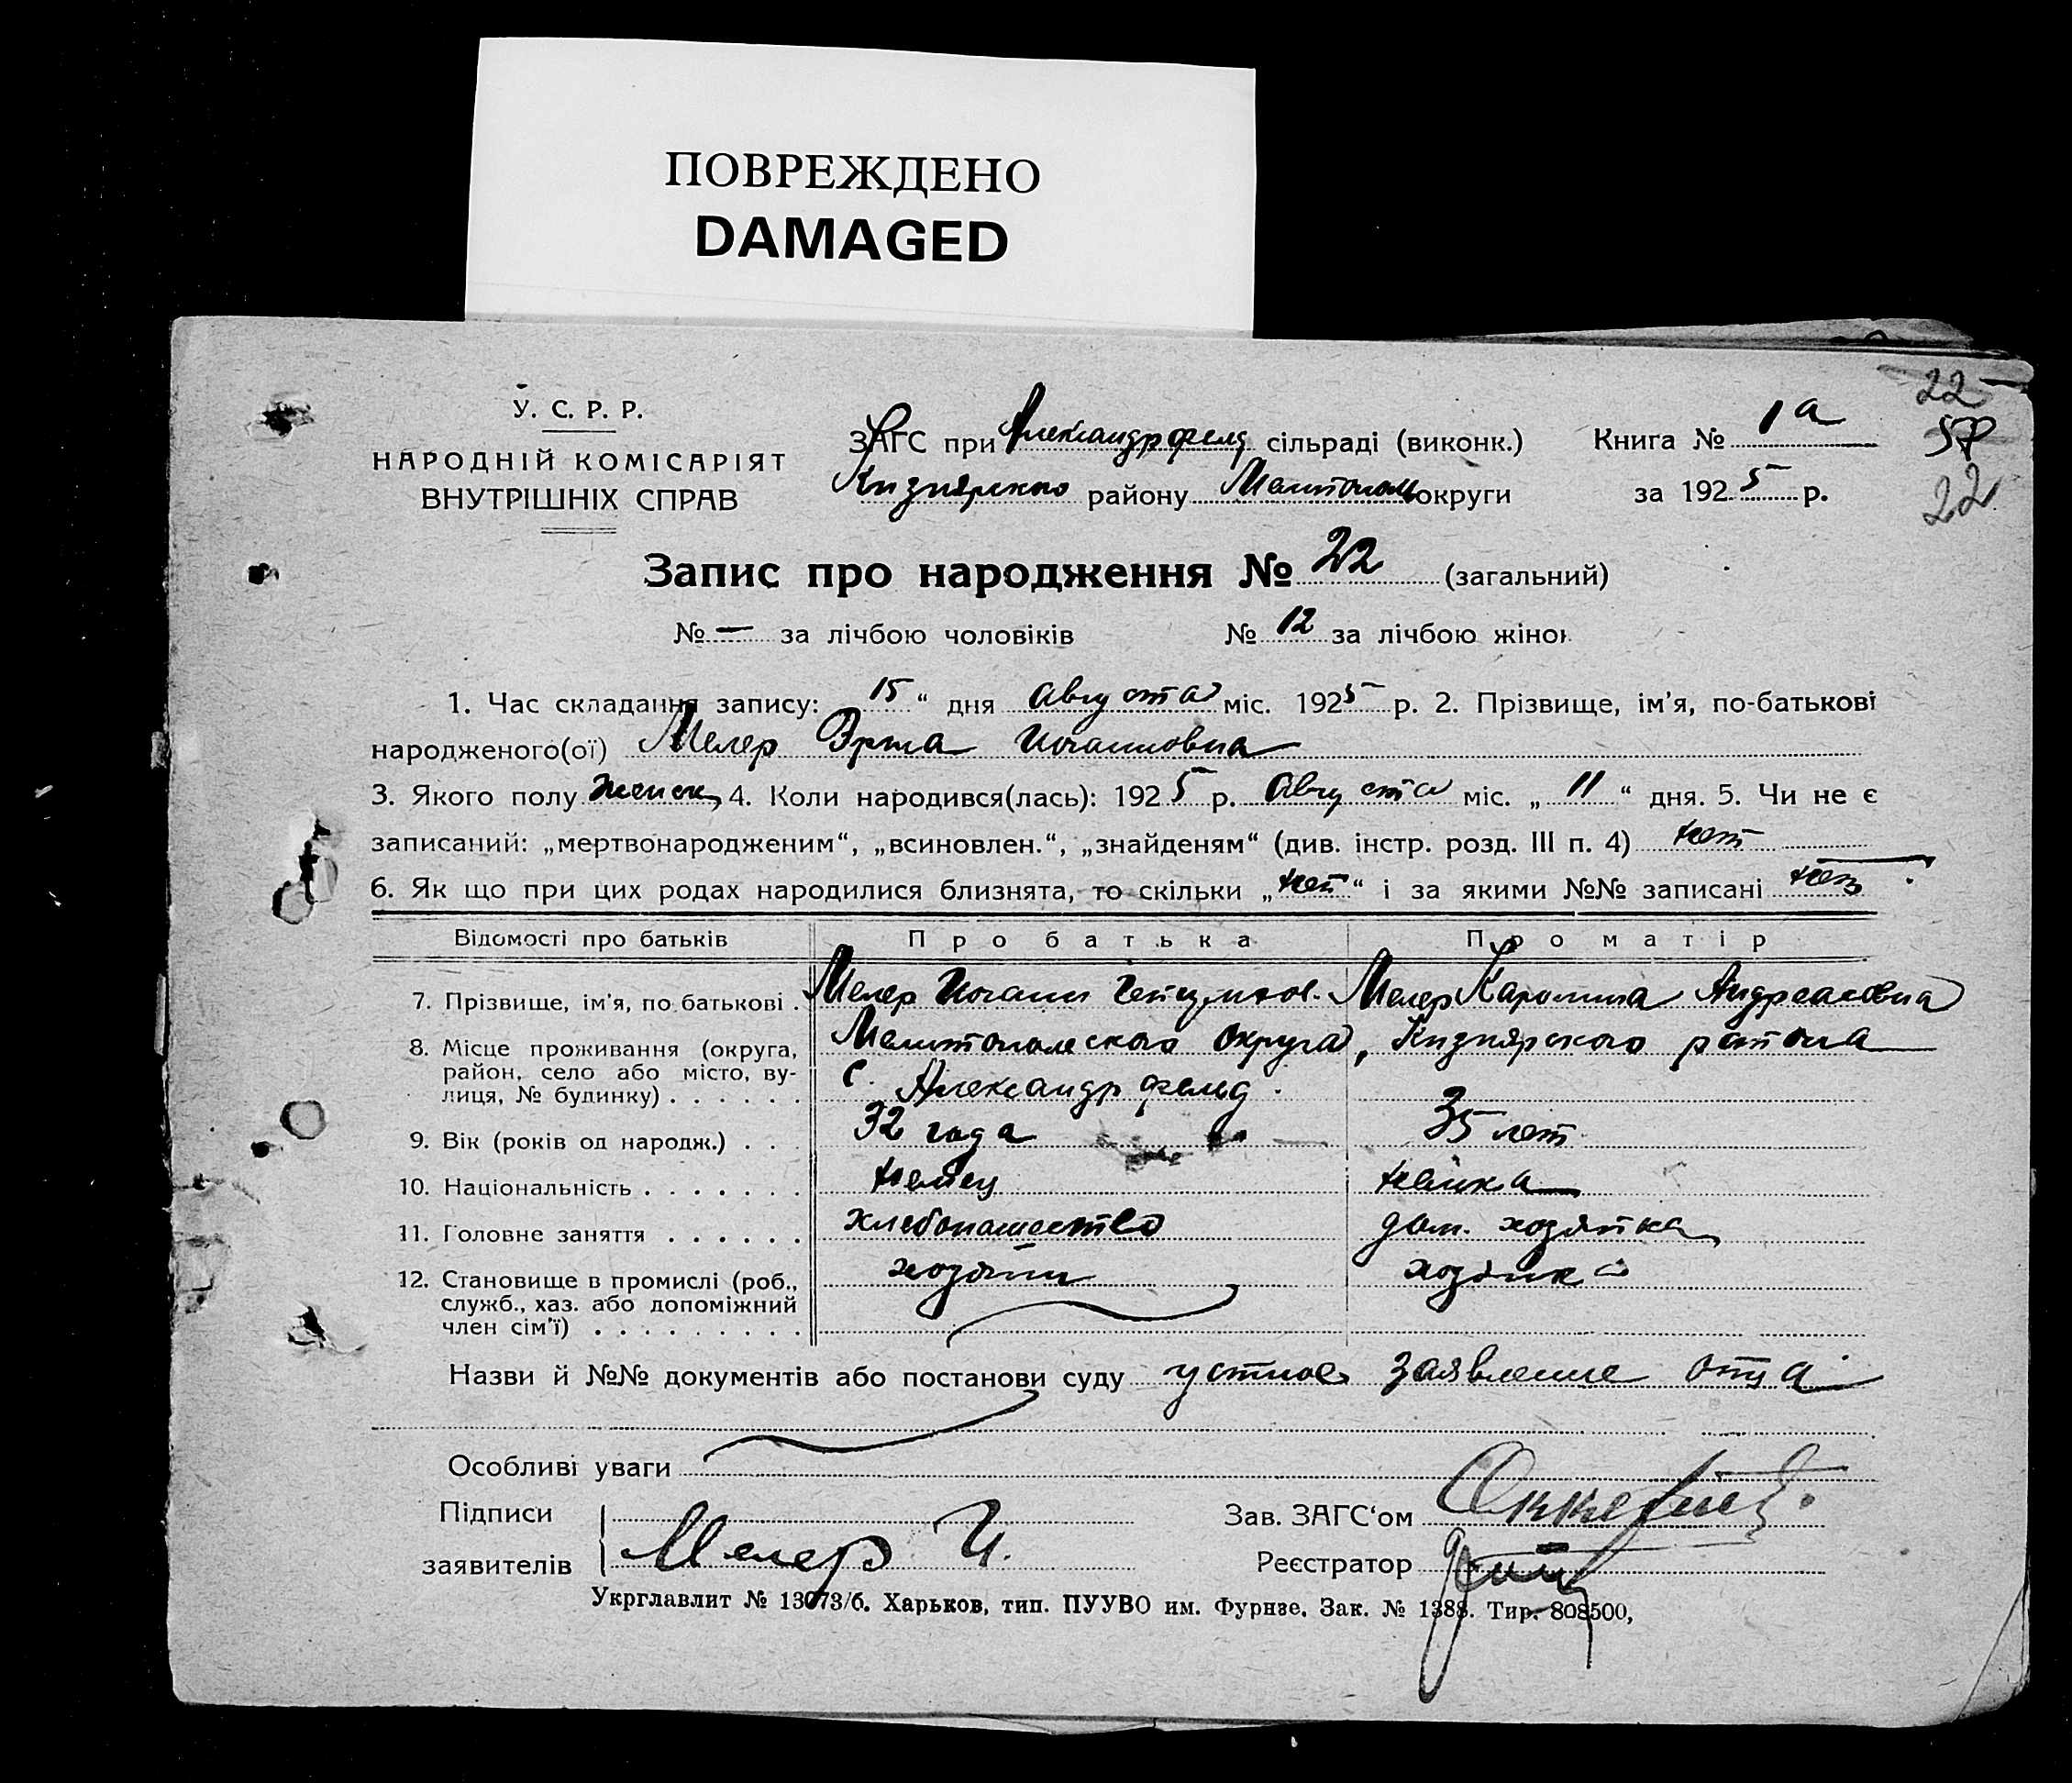 ПОВРЕЖДЕНО
DAMAGED
22
57
22
У. С. Р. Р.
НАРОДНІЙ КОМІСАРІЯТ
ВНУТРІШНІХ СПРАВ
ЗАГС при Александрфельд сільраді (виконк.)
Кизиярского району Мелитополь округи
Книга № 1а
за 1925 р.
Запис про народження № 22 (загальний)
№ — за лічбою чоловіків № 12 за лічбою жінок
1. Час складання запису: 15 “ дня августа міс. 1925 р. 2. Прізвище, ім’я, по-батькові
народженого(ої) Мелер Эрна Иоганновна
3. Якого полу женск. 4. Коли народився(лась): 1925 р. августа міс. „ 11 “ дня. 5. Чи не є
записаний: „мертвонародженим“, „всиновлен.“, „знайденям“ (див. інстр. розд. III п. 4) нет
6. Як що при цих родах народилися близнята, то скільки „нет“ і за якими №№ записані нет.
Відомості про батьків Про батька Про матір
7. Прізвище, ім’я, по батькові . Мелер Иоганн Мелер Каролина Андреасовна
8. Місце проживання (округа, Мелитопольского округа, Кизиярского района
район, село або місто, ву- с. Александрфельд.
лиця, № будинку) . . . . . .
9. Вік (років од народж.) . . 32 года 35 лет
10. Національність . . . . . . . немец немка
11. Головне заняття . . . . . . хлебопашество дом. хозяйка
12. Становище в промислі (роб., хозяин хозяйка
служб., хаз. або допоміжний
член сім’ї) . . . . . . . . .
Назви й №№ документів або постанови суду устное заявление отца
Особливі уваги
Підписи
заявителів Мелер И.
Зав. ЗАГС‘ом
Реєстратор
Укрглавлит № 13073/б. Харьков, тип. ПУУВО им. Фурнзе. Зак. № 1388. Тир. 808500,